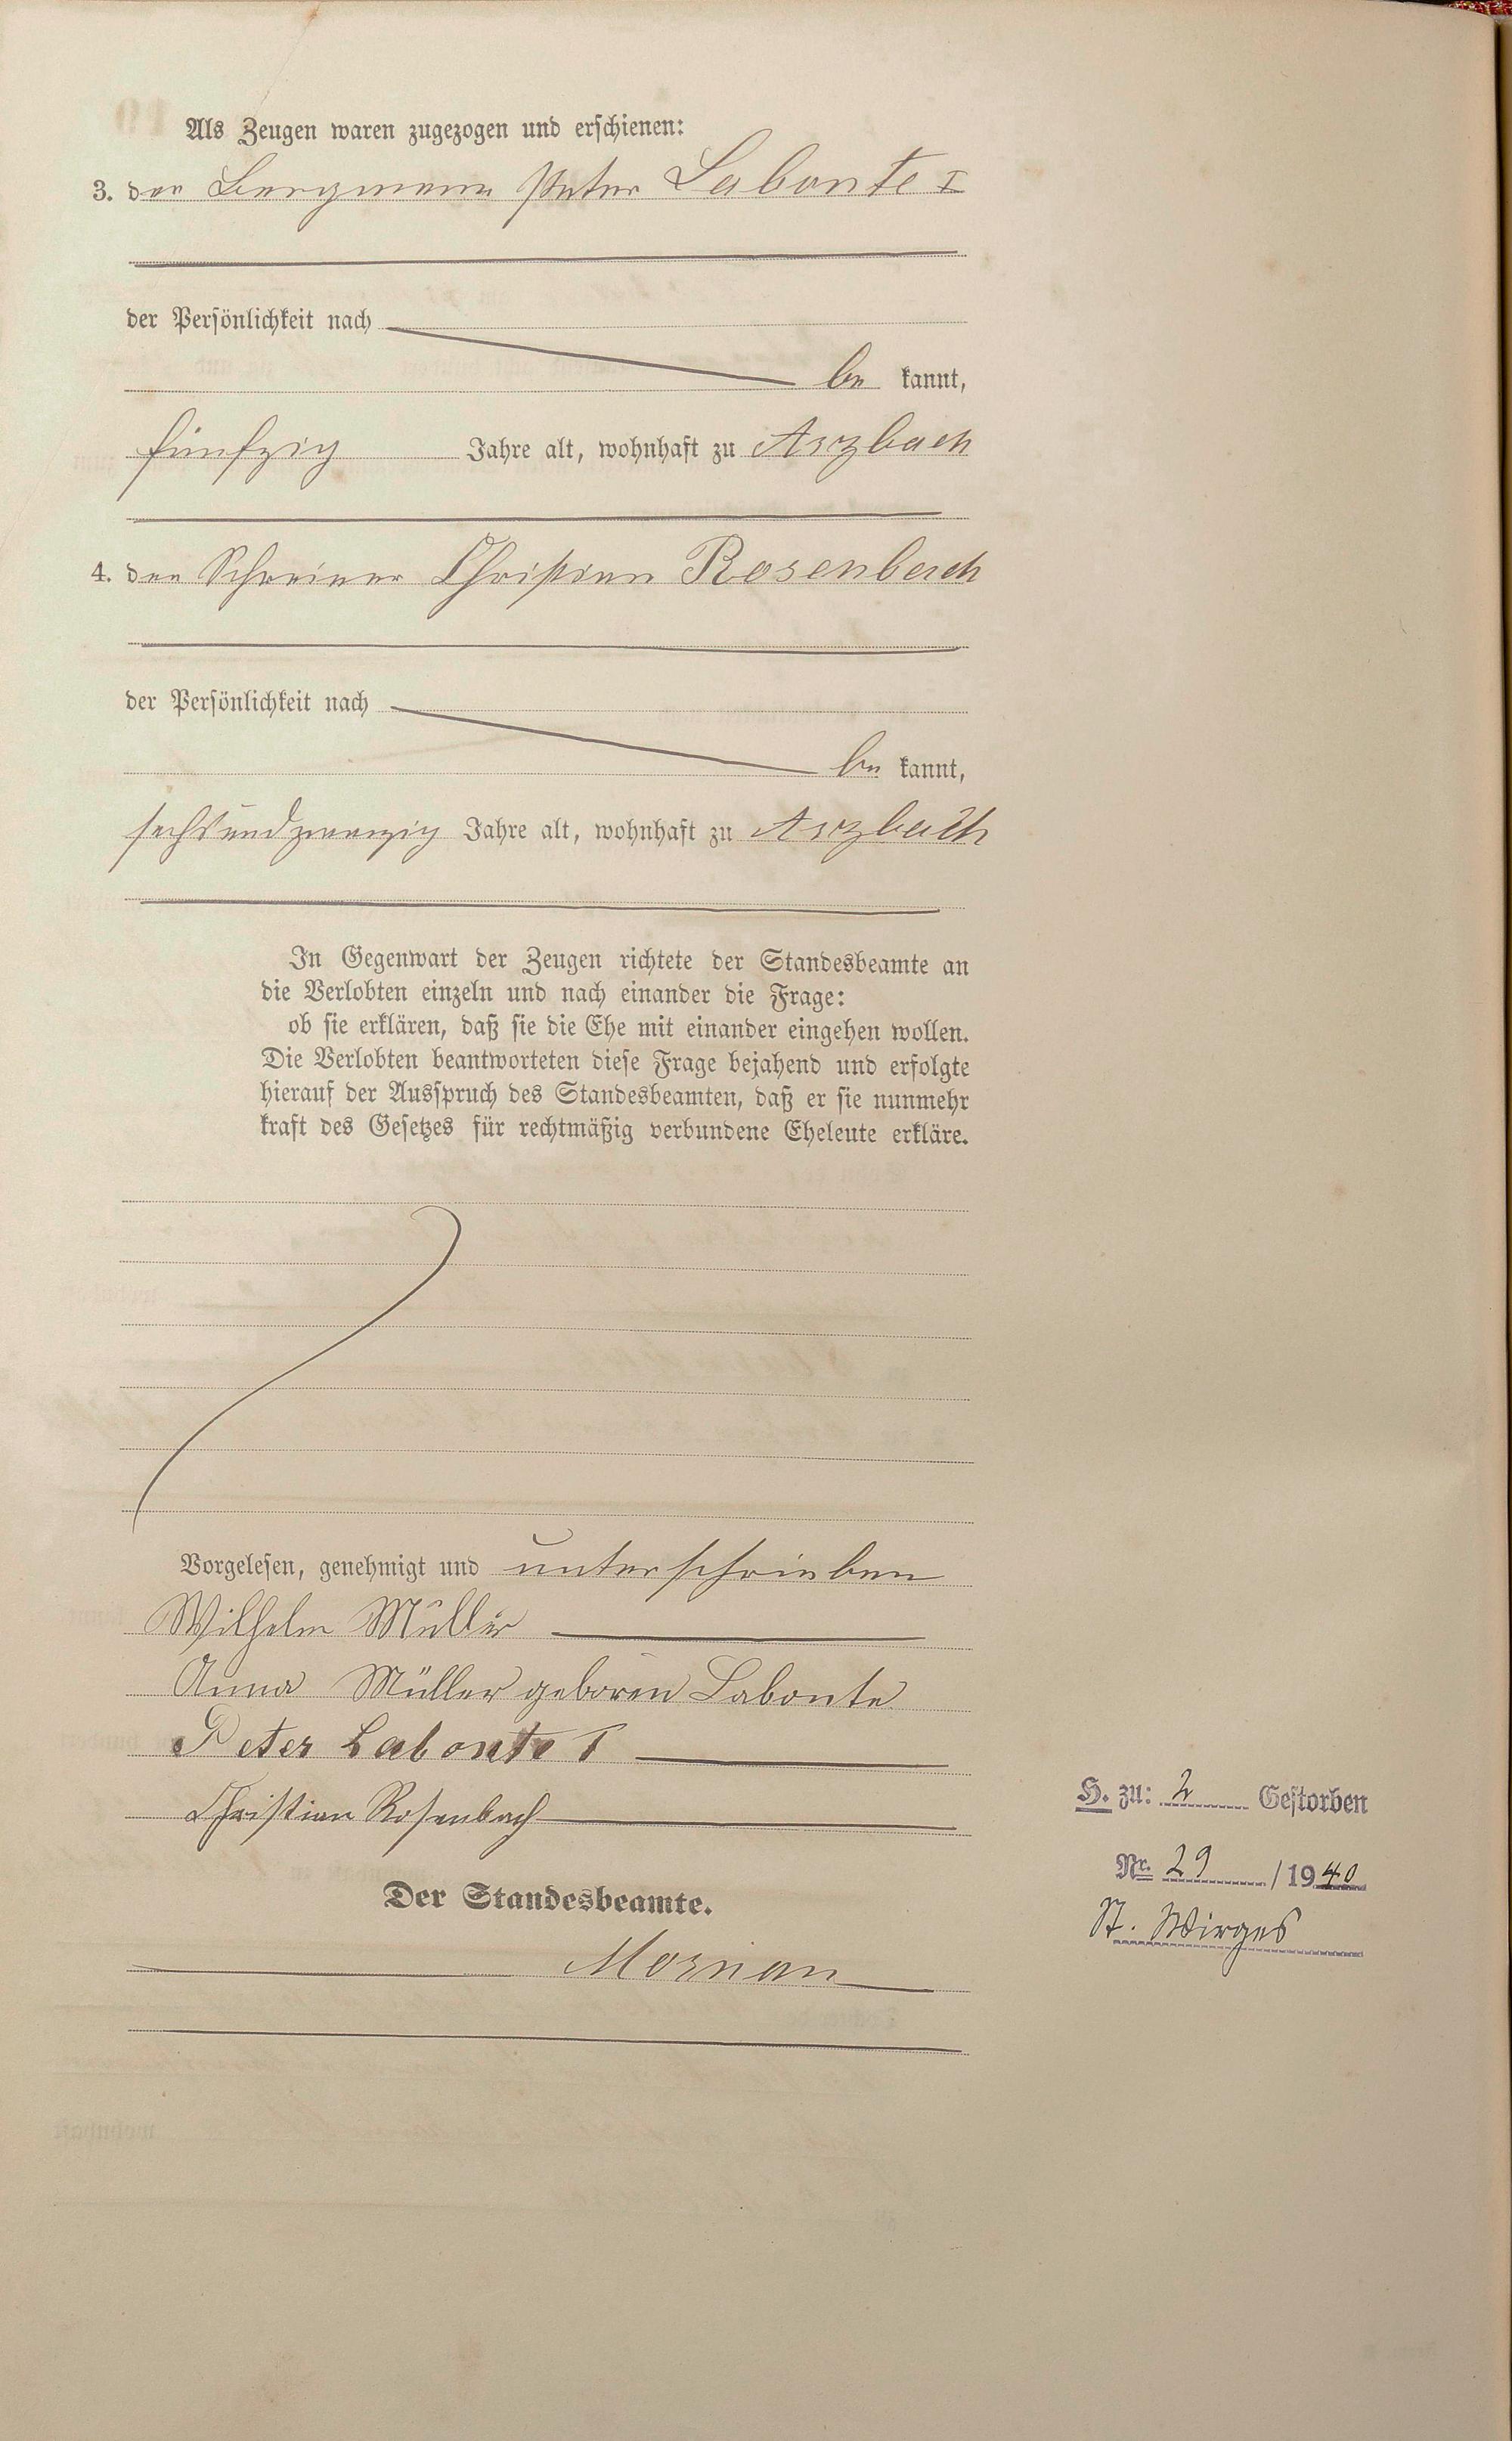 Als Zeugen waren zugezogen und erschienen:
3. der Bergmann Peter Labonte I
der Persönlichkeit nach
be kannt,
fünfzig Jahre alt, wohnhaft zu Arzbach
4. der Schreiner Christian Rosenbach
der Persönlichkeit nach
be kannt,
sechsundzwanzig Jahre alt, wohnhaft zu Arzbach
In Gegenwart der Zeugen richtete der Standesbeamte an
die Verlobten einzeln und nach einander die Frage:
ob sie erklären, daß sie die Ehe mit einander eingehen wollen.
Die Verlobten beantworteten diese Frage bejahend und erfolgte
hierauf der Ausspruch des Standesbeamten, daß er sie nunmehr
kraft des Gesetzes für rechtmäßig verbundene Eheleute erkläre.
Vorgelesen, genehmigt und unterschrieben
Wilhelm Müller
Anna Müller geboren Labonte
Peter Labonte I
Christian Rosenbach
Der Standesbeamte.
H. zu: 2 Gestorben
Nr. 29 / 1940
St. Wirges